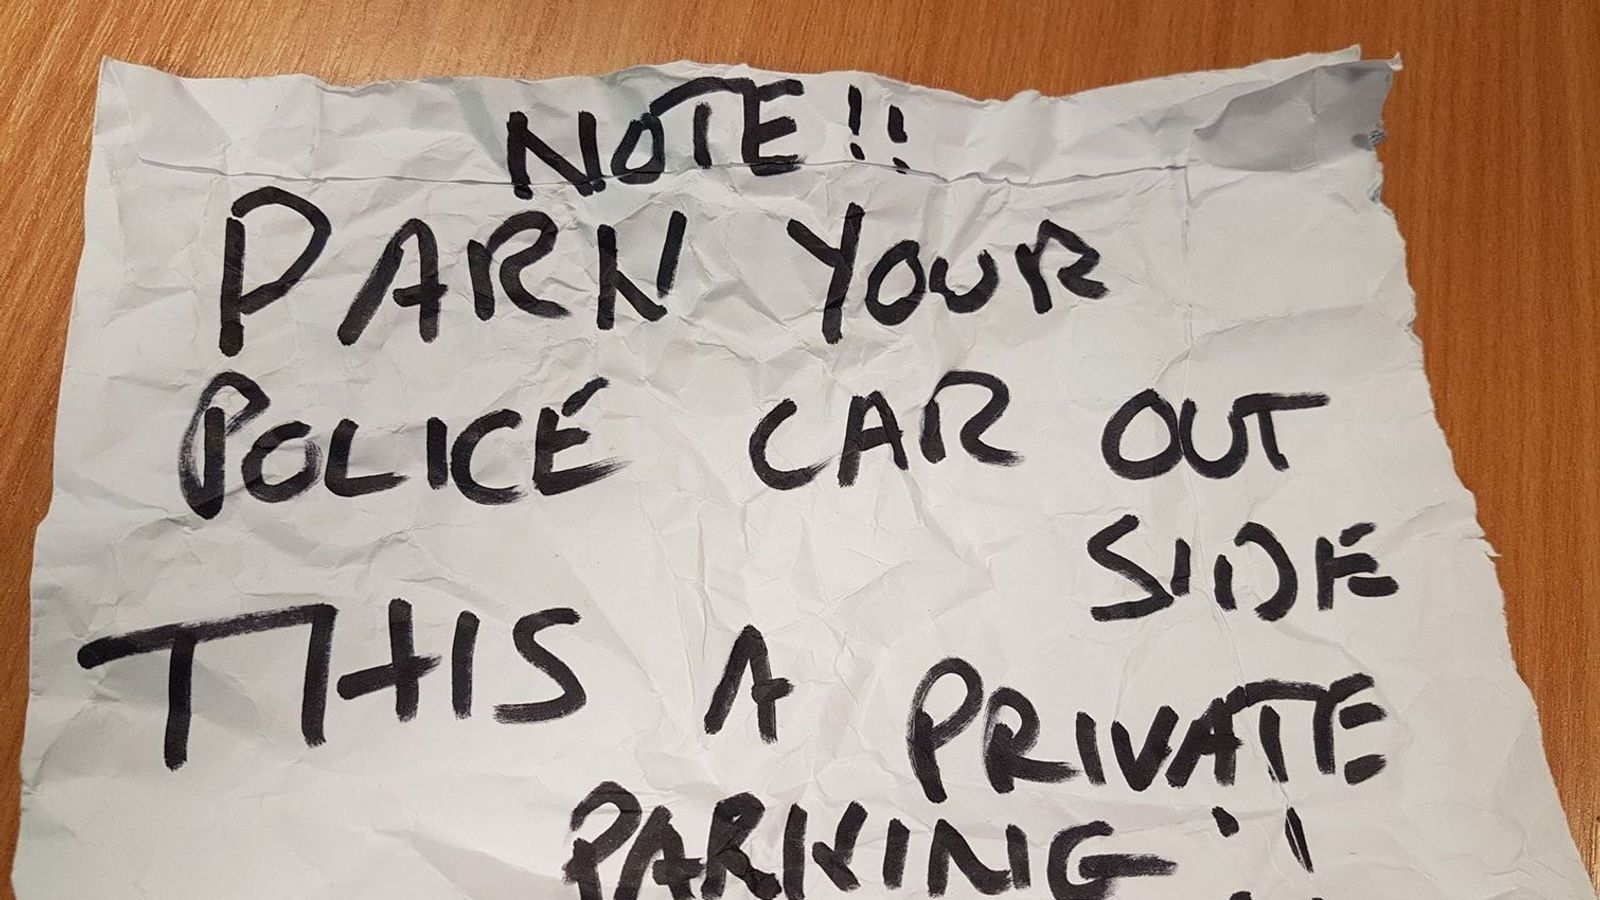 NOTE!!
PARK YOUR
POLICE CAR OUT
SIDE
THIS A PRIVATE
PARKING!!